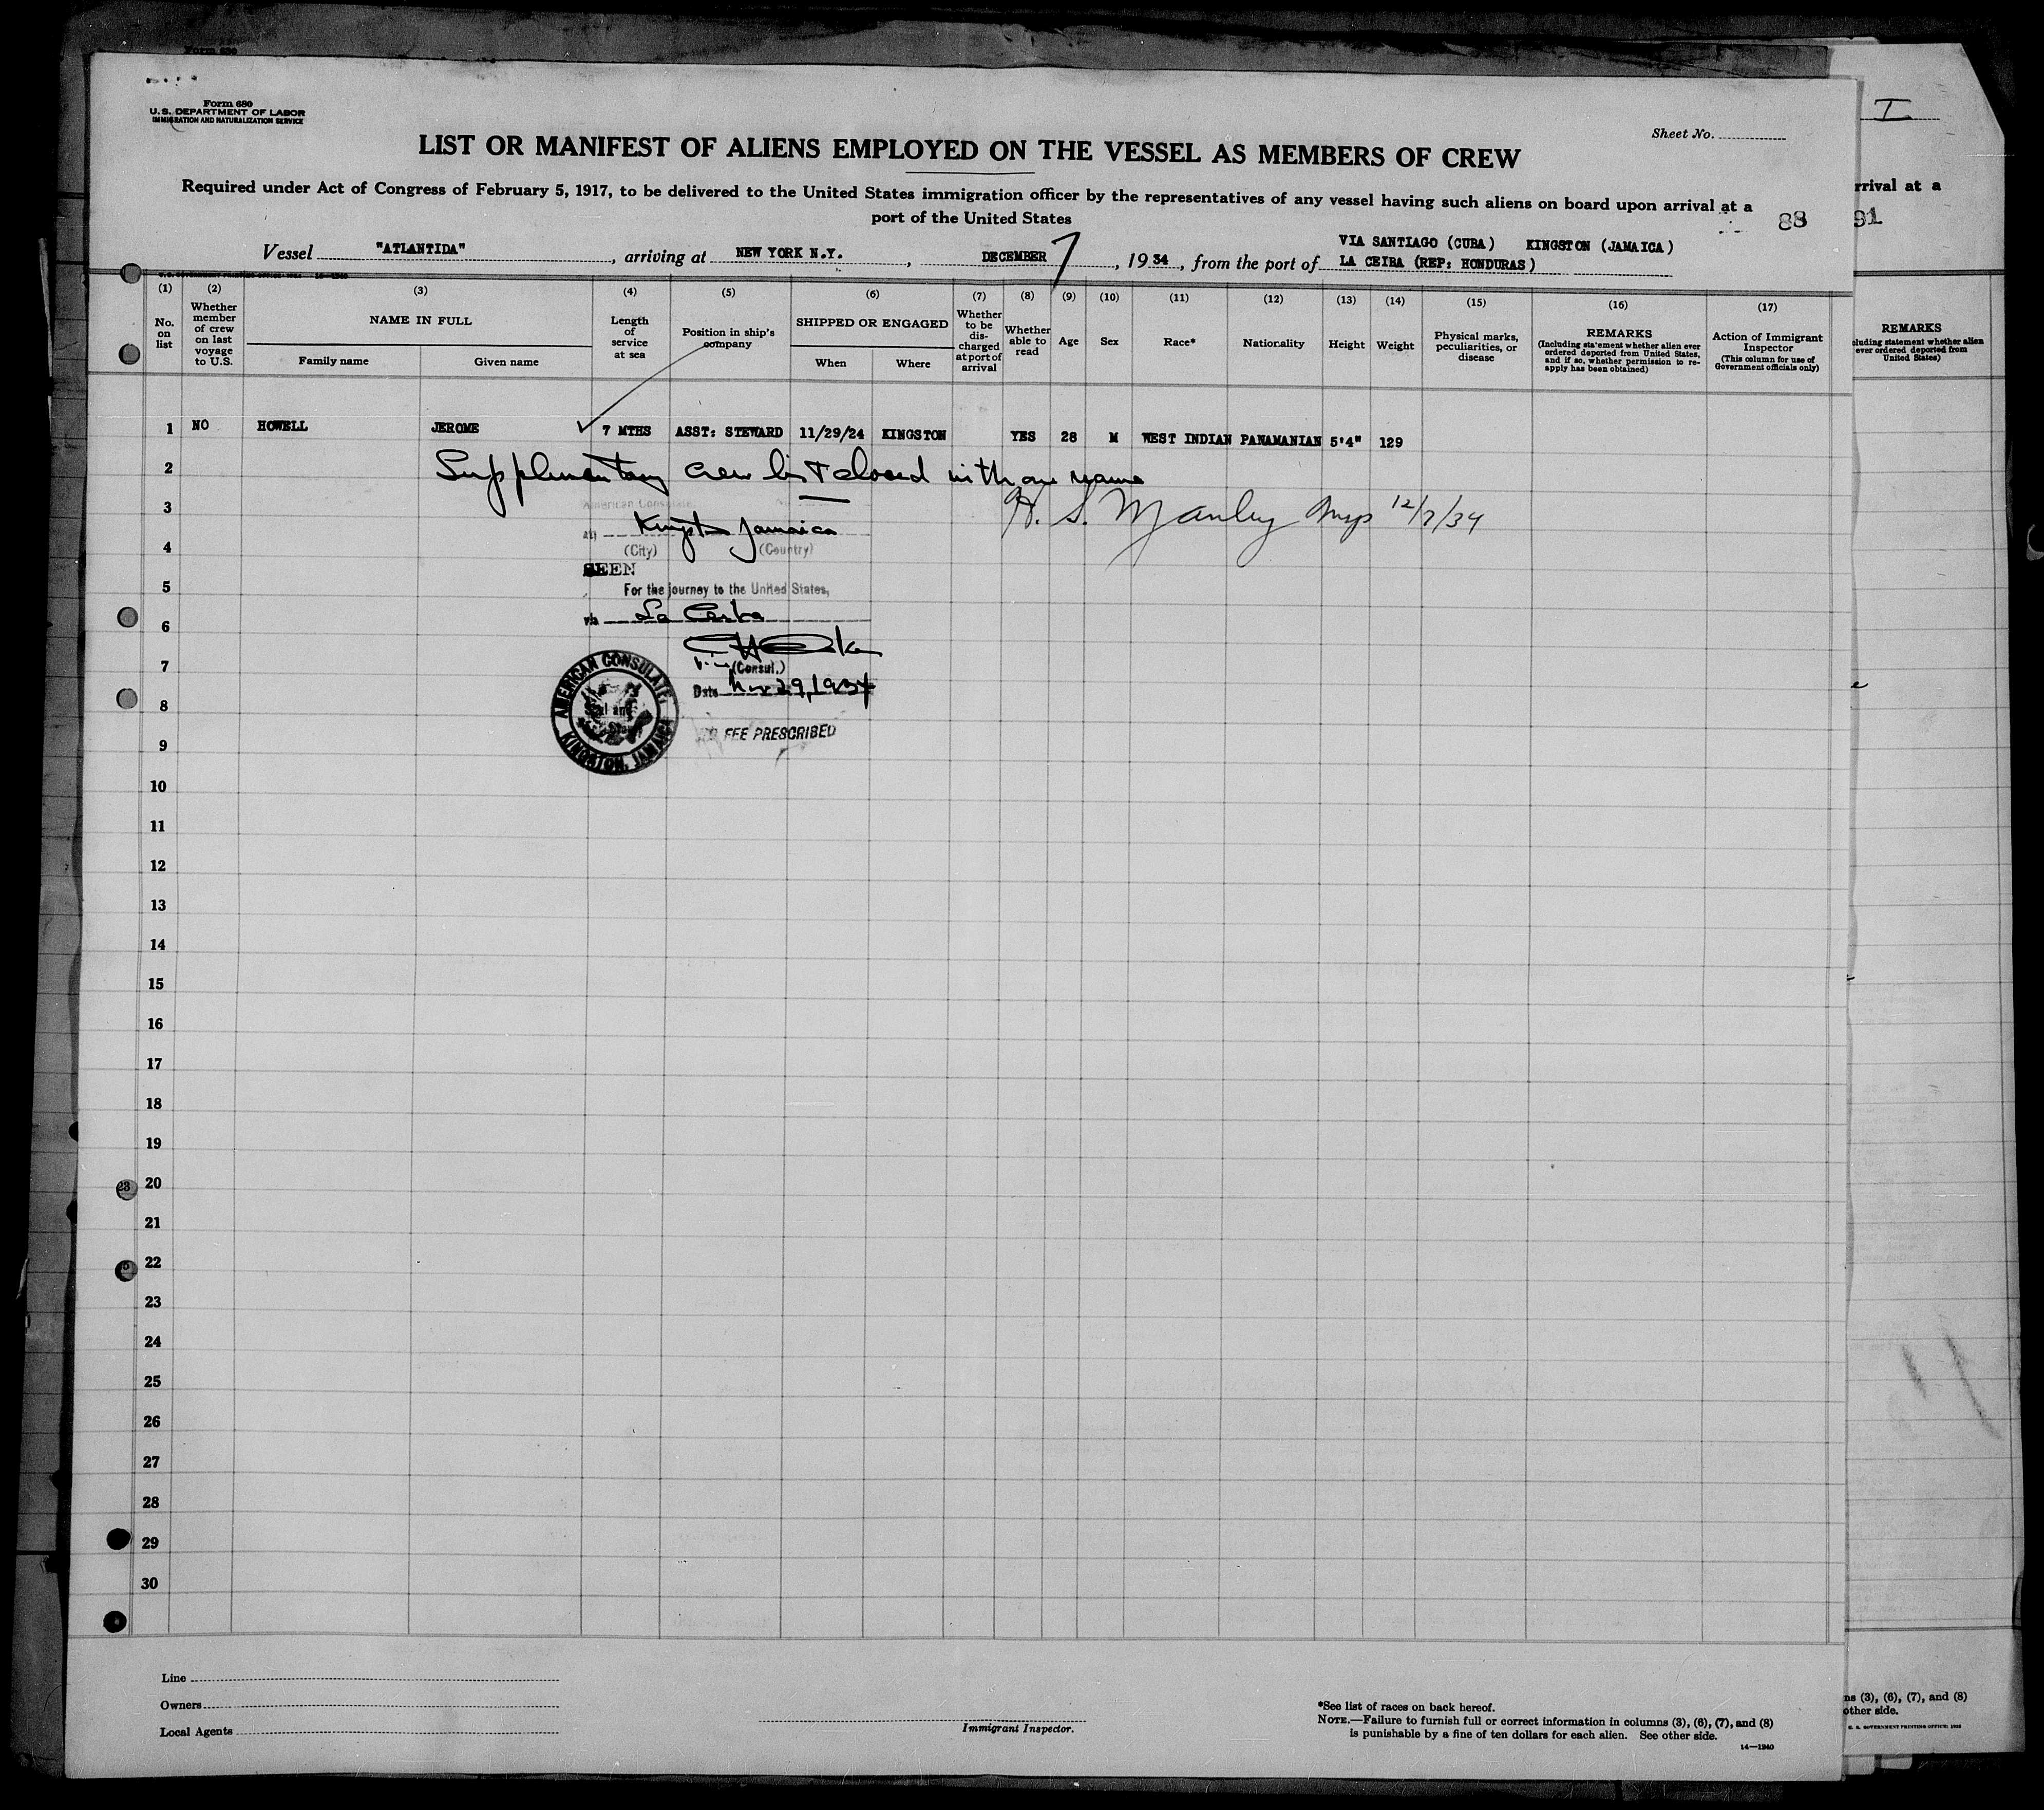 Form 680
U. S. DEPARTMENT OF LABOR
IMMIGRATION AND NATURALIZATION SERVICE
Sheet No.
LIST OR MANIFEST OF ALIENS EMPLOYED ON THE VESSEL AS MEMBERS OF CREW
Required under Act of Congress of February 5, 1917, to be delivered to the United States immigration officer by the representatives of any vessel having such aliens on board upon arrival at a
port of the United States
88
VIA SANTIAGO (CUBA) KINGSTON (JAMAICA)
Vessel "ATLANTIDA", arriving at NEW YORK N.Y., DECEMBER 7, 1934, from the port of LA CEIBA (REP: HONDURAS)
(1) No. on list
(2) Whether member of crew on last voyage to U.S.
(3) NAME IN FULL
Family name Given name
(4) Length of service at sea
(5) Position in ship's company
(6) SHIPPED OR ENGAGED
When Where
(7) Whether to be discharged at port of arrival
(8) Whether able to read
(9) Age
(10) Sex
(11) Race*
(12) Nationality
(13) Height
(14) Weight
(15) Physical marks, peculiarities, or disease
(16) REMARKS (Including statement whether alien ever ordered deported from United States, and if so, whether permission to re-apply has been obtained)
(17) Action of Immigrant Inspector (This column for use of Government officials only)
1 NO HOWELL JEROME 7 MTHS ASST: STEWARD 11/29/24 KINGSTON YES 28 M WEST INDIAN PANAMANIAN 5'4" 129
2 Supplimentary crew list closed with one name
3 American Consulate
H. S. Manley Insp 12/7/34
at Kingston Jamaica
4 (City) (Country)
SEEN
5 For the journey to the United States,
6 via La Ceiba
7 (Consul.)
Date Nov 29, 1934
8
9 NO FEE PRESCRIBED
AMERICAN CONSULATE KINGSTON, JAMAICA
10
11
12
13
14
15
16
17
18
19
20
21
22
23
24
25
26
27
28
29
30
Line
Owners
Local Agents
Immigrant Inspector.
*See list of races on back hereof.
NOTE.—Failure to furnish full or correct information in columns (3), (6), (7), and (8)
is punishable by a fine of ten dollars for each alien. See other side.
14—1240
I
rrival at a
91
REMARKS
cluding statement whether alien
ever ordered deported from
United States)
ns (3), (6), (7), and (8)
other side.
U. S. GOVERNMENT PRINTING OFFICE